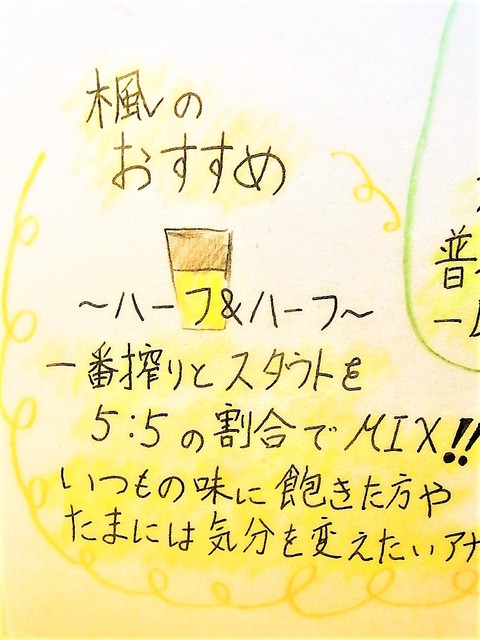 楓の
おすすめ
～ハーフ&ハーフ～
一番搾りとスタウトを
5:5の割合でMIX!!
いつもの味に飽きた方や
たまには気分を変えたいアナ
普
一